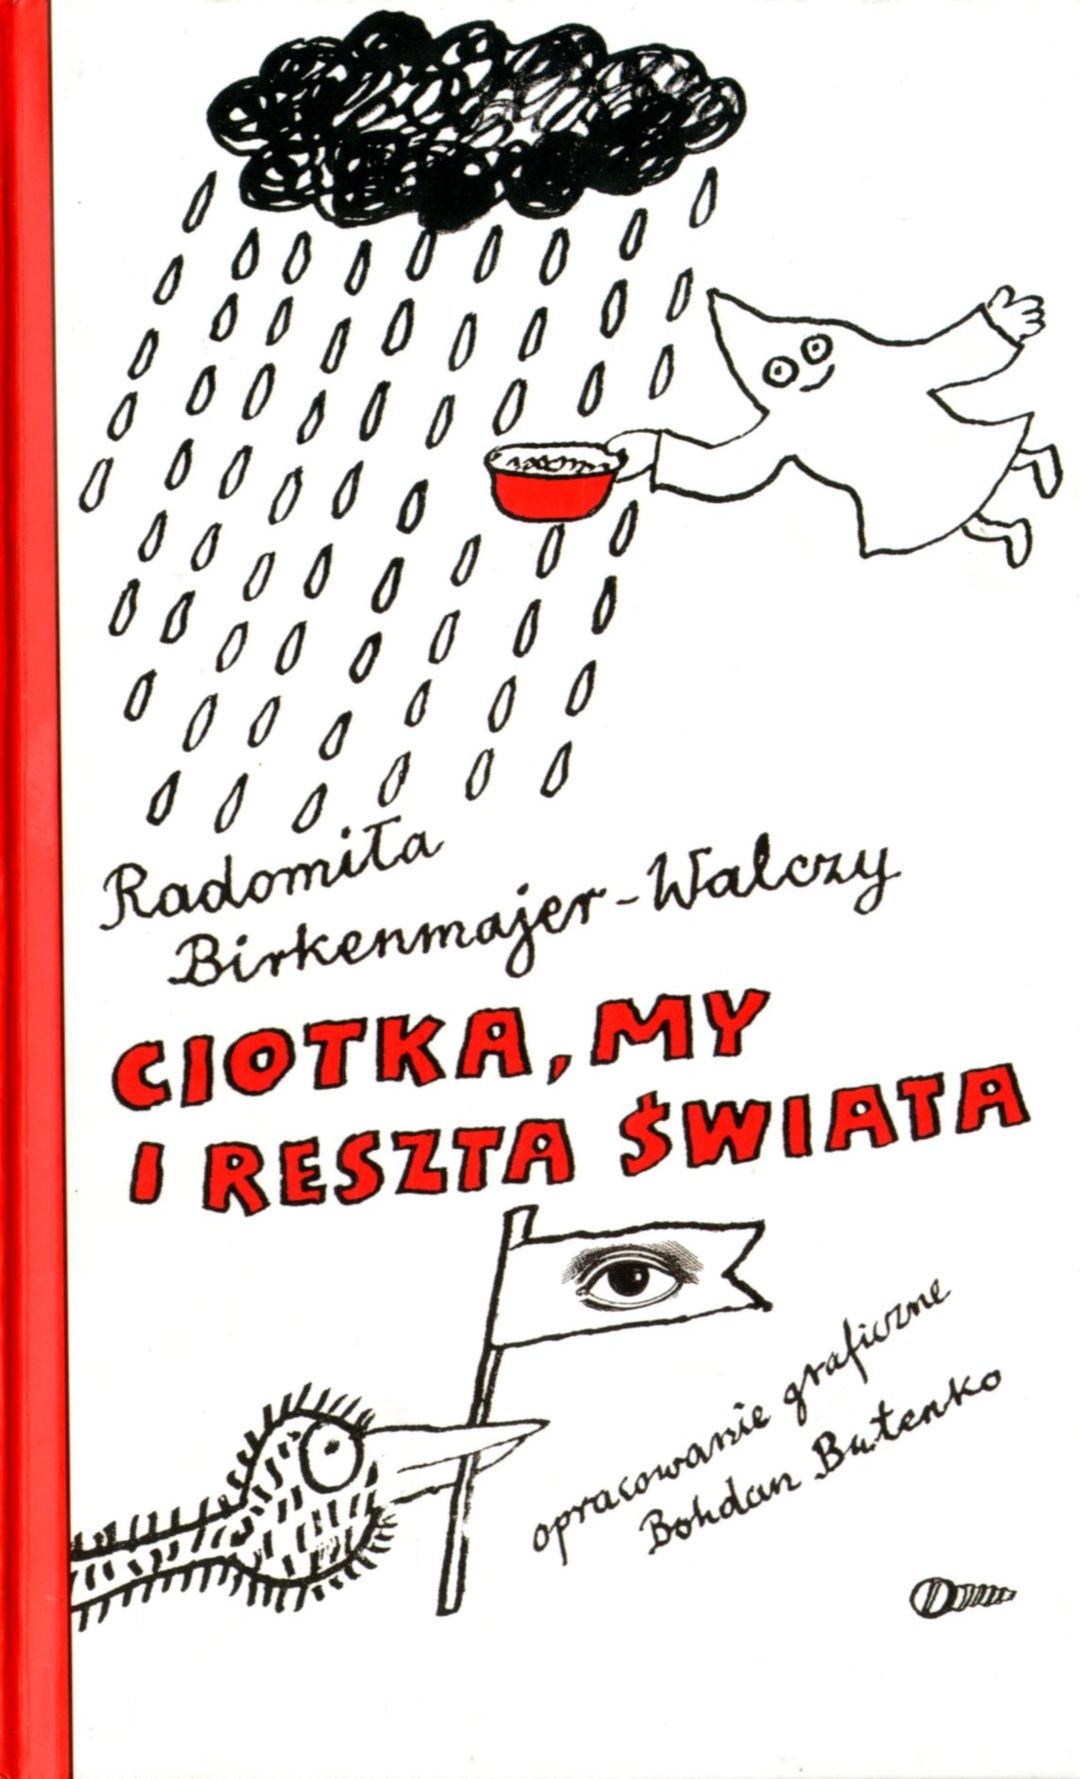 Radomiła
Birkenmajer-Walczy
CIOTKA, MY
I RESZTA ŚWIATA
opracowanie graficzne
Bohdan Butenko